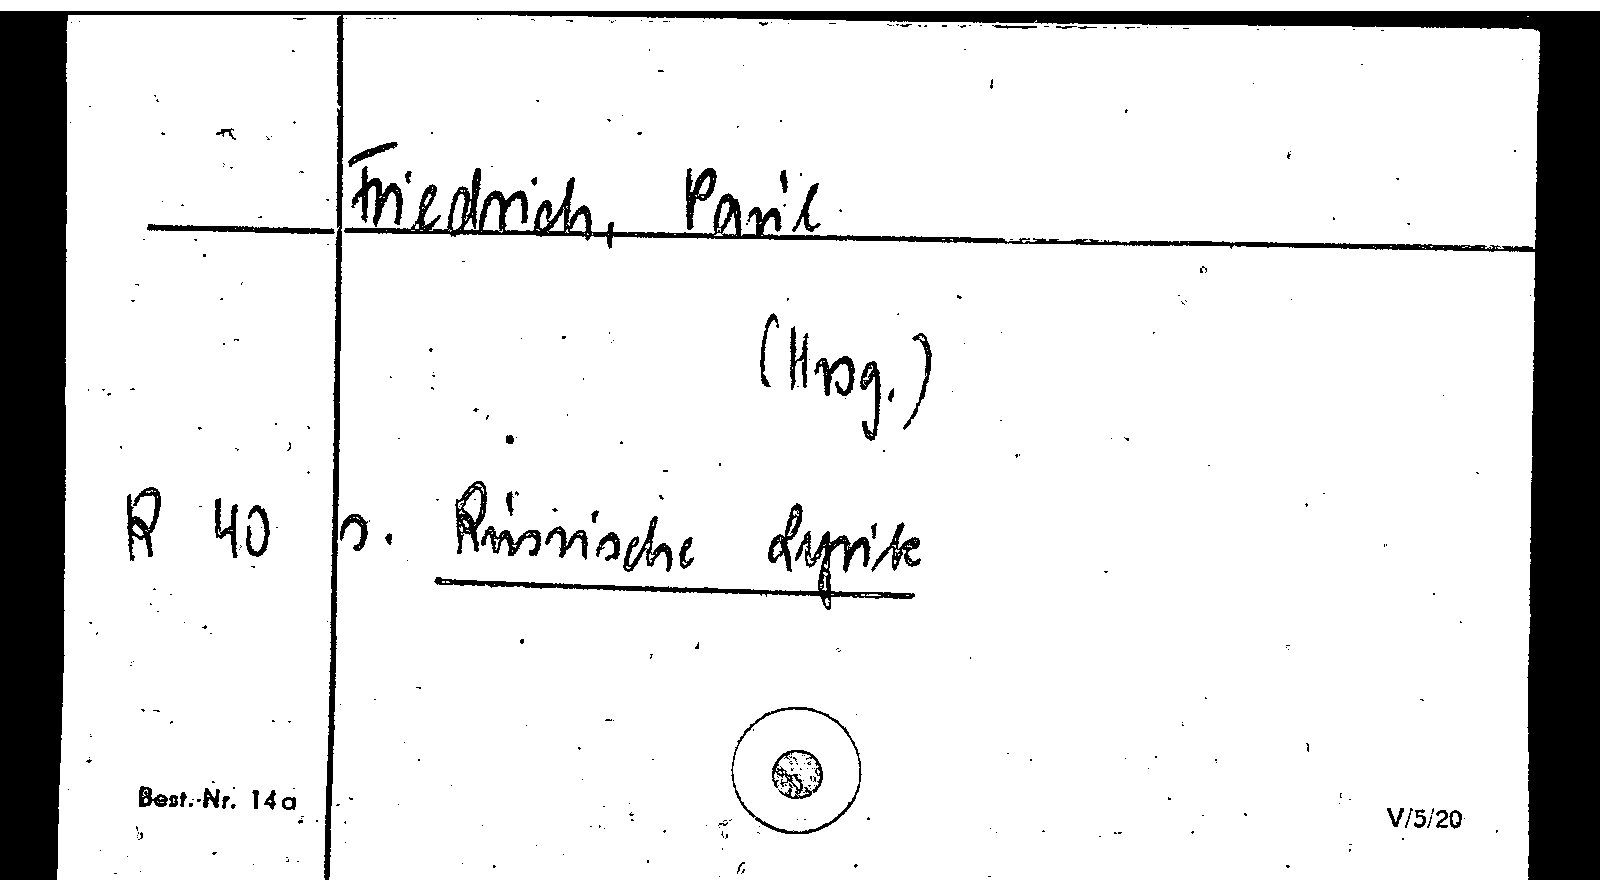 Friedrich, Paul
(Hrsg.)
R 40 s. Russische Lyrik
Best.-Nr. 14a
V/5/20